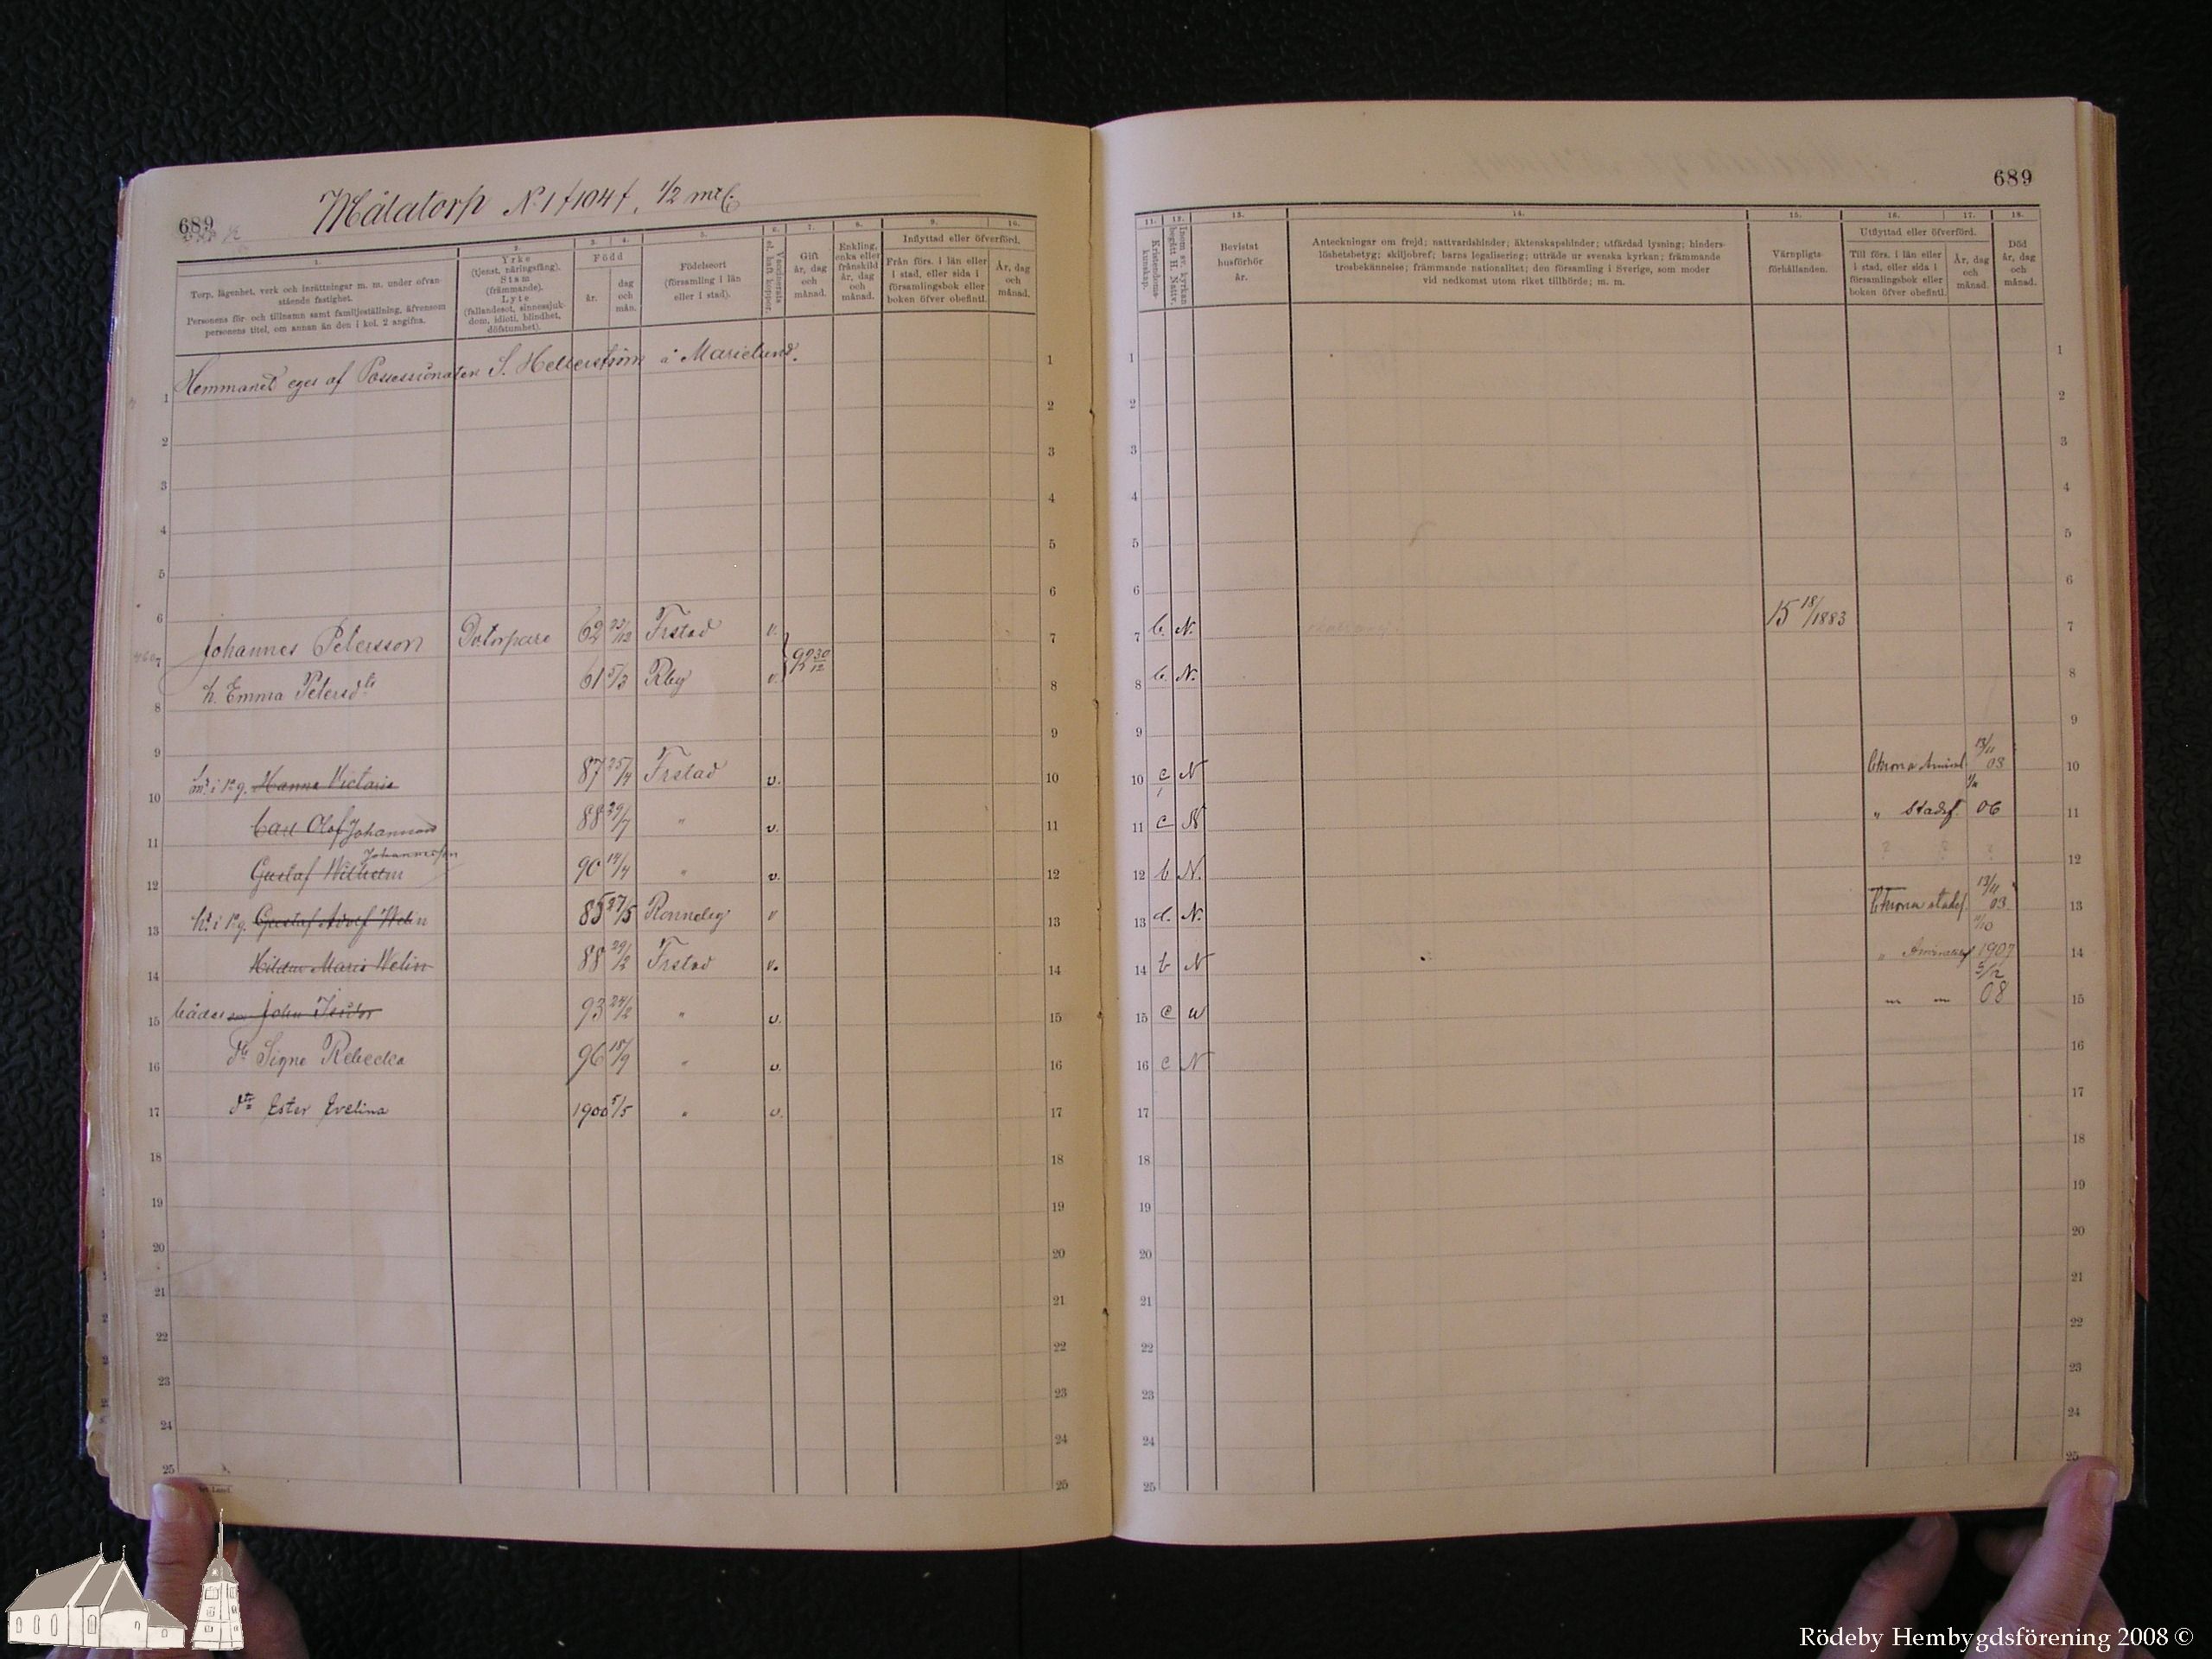 689
Målatorp N:1 f 104 f, 1/2 mtl.
1. 2. 3. 4. 5. 6. 7. 8. 9. 10.
Torp, lägenhet, verk och inrättningar m. m. under ofvan-
stående fastighet.
Personens för- och tillnamn samt familjeställning, äfvensom
personens titel, om annan än den i kol. 2 angifna.
Yrke
(tjenst, näringsfång).
Stam
(främmande).
Lyte
(fallandesot, sinnessjuk-
dom, idioti, blindhet,
döfstumhet).
Född
år.
dag
och
mån.
Födelseort
(församling i län
eller i stad).
Vaccinerats
el. haft koppor.
Gift
år, dag
och
månad.
Enkling,
enka eller
frånskild
år, dag
och
månad.
Inflyttad eller öfverförd.
Från förs. i län eller
i stad, eller sida i
församlingsbok eller
boken öfver obefintl.
År, dag
och
månad.
Hemmanet eges af Possessionaten S. Hellerström å Marielund.
1 1
2 2
3 3
4 4
5 5
6 6
7 Johannes Petersson Dotorpare 62 Frstad v. 92 30/12 7
8 h. Emma Petersd:r 61 5/3 Rby v. 8
9 9
10 Hanna Victoria 87 25/4 Frstad v. 10
11 Carl Olof Johannesson 88 29/7 " v. 11
Johannesson
12 Gustaf Wilhelm 90 14/4 " v. 12
13 Gustaf Adolf Welin 85 27/5 Ronneby v 13
14 Hilda Maria Welin 88 29/2 Frstad v. 14
15 John Isidor 93 24/2 " v. 15
16 Signe Rebecka 96 18/9 " v. 16
17 Ester Evelina 1900 5/5 " v. 17
18 18
19 19
20 20
21 21
22 22
23 23
24 24
25 25
689
11. 12. 13. 14. 15. 16. 17. 18.
Kristendoms-
kunskap.
Inom sv. kyrkan
begått H. Nattv.
Bevistat
husförhör
år.
Anteckningar om frejd; nattvardshinder; äktenskapshinder; utfärdad lysning; hinders-
löshetsbetyg; skiljobref; barns legalisering; utträde ur svenska kyrkan; främmande
trosbekännelse; främmande nationalitet; den församling i Sverige, som moder
vid nedkomst utom riket tillhörde; m. m.
Värnpligts-
förhållanden.
Utflyttad eller öfverförd.
Till förs. i län eller
i stad, eller sida i
församlingsbok eller
boken öfver obefintl.
År, dag
och
månad.
Död
år, dag
och
månad.
1 1
2 2
3 3
4 4
5 5
6 6
7 b. N. 15 18/1883 7
8 b. N. 8
9 9
10 c N Ckrona Amiral 13/11 03 10
11 c N " Stadsf. 06 11
12 b N. 12
13 d. N. Ckrona stadsf. 13/11 03 13
14 b N " 1907 14
15 c 5/12 08 15
16 c N 16
17 17
18 18
19 19
20 20
21 21
22 22
23 23
24 24
25 25
Rödeby Hembygdsförening 2008 ©